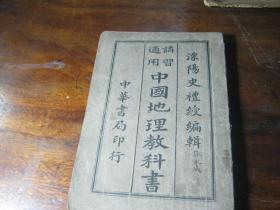 溧陽史禮綬編輯
講習適用
中國地理教科書
中華書局印行